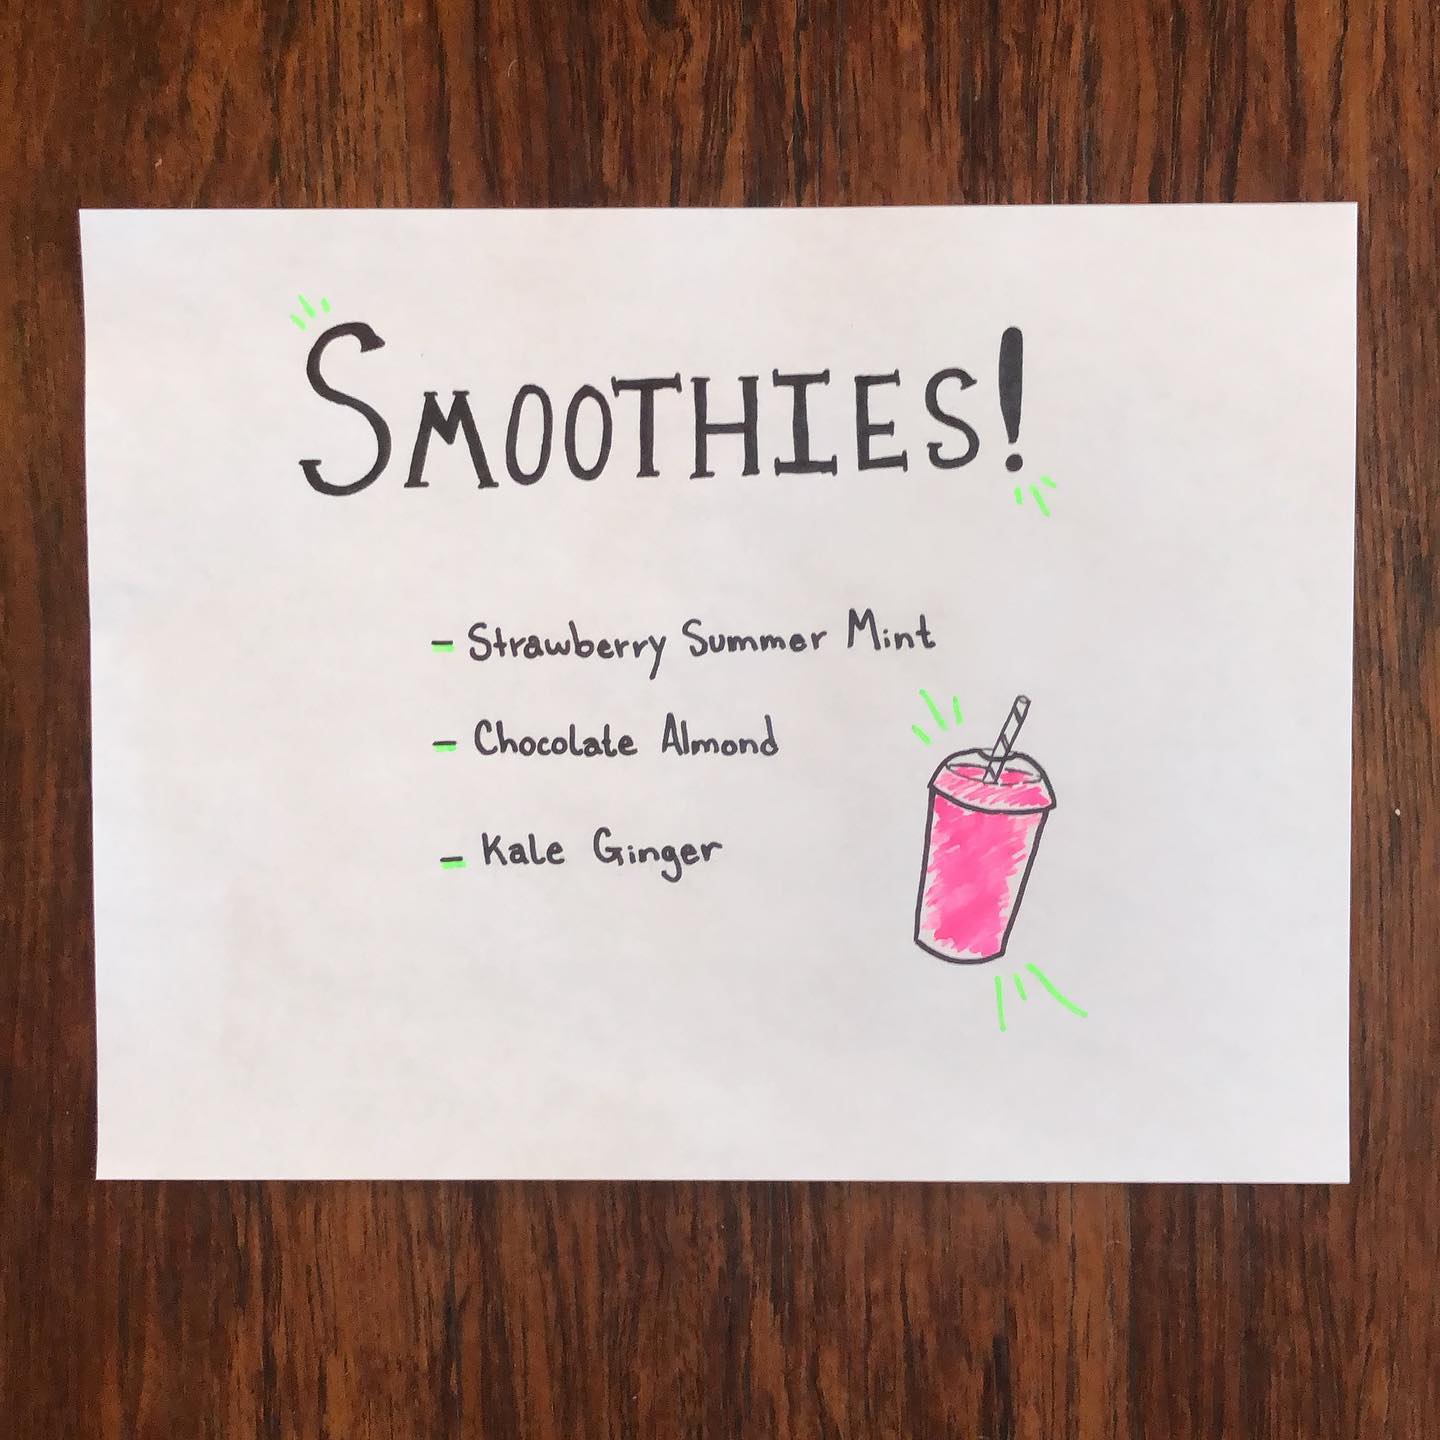 SMOOTHIES!
- Strawberry Summer Mint
- Chocolate Almond
- Kale Ginger